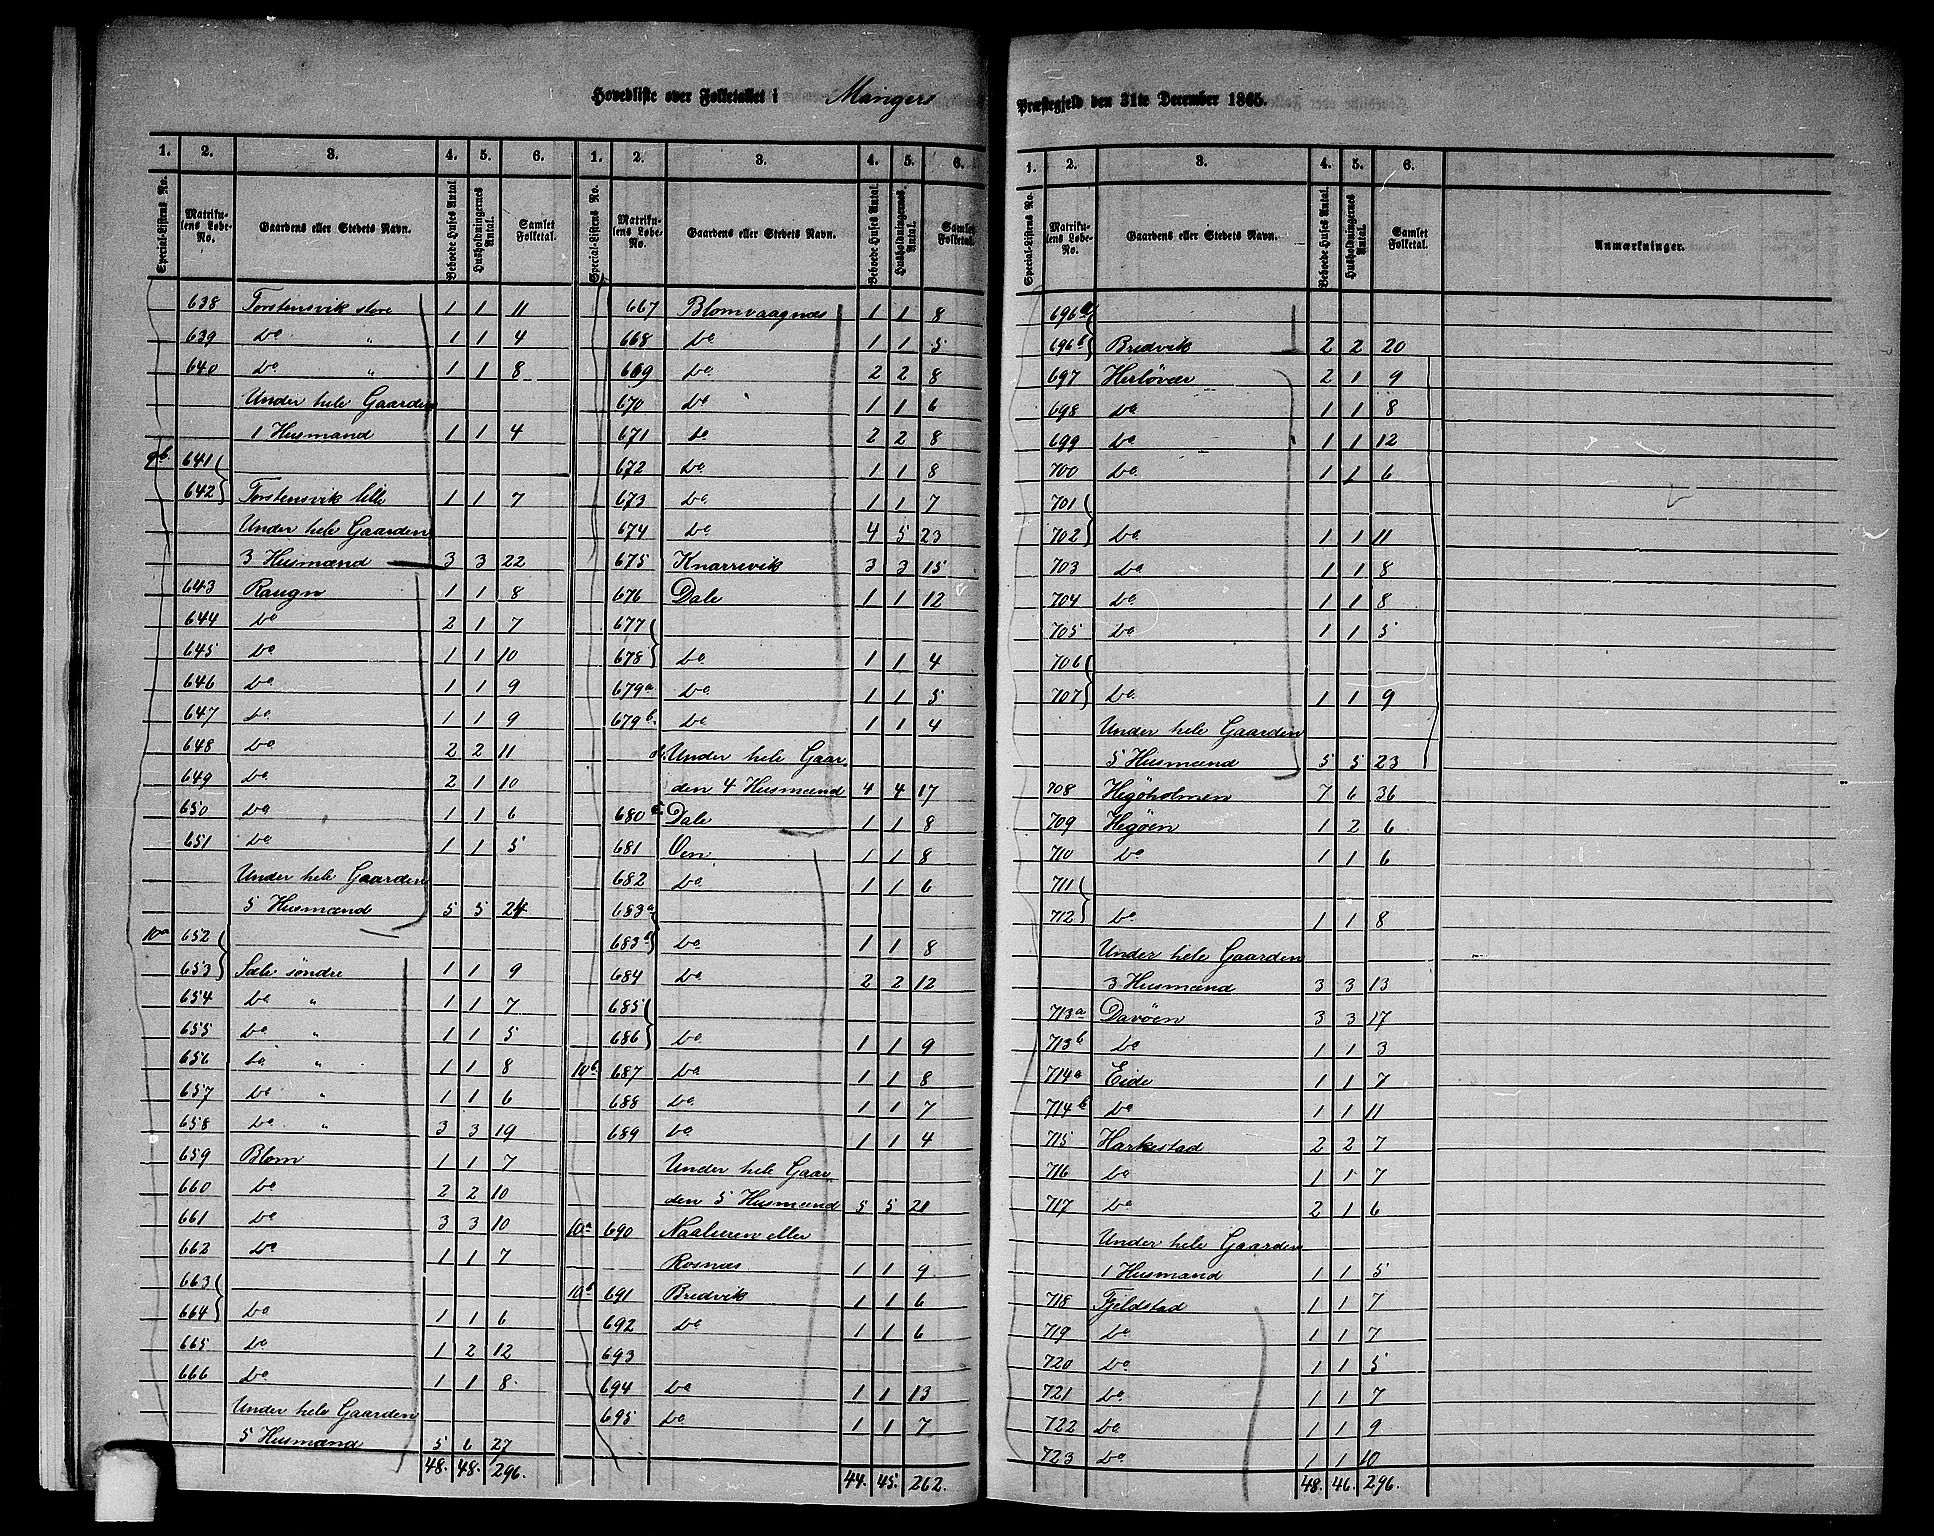 Hovedliste over Folketallet i Mangers Præstegjeld den 31te December 1865.
1. 2. 3. 4. 5. 6.
Special-Listens No. Matrikulens Løbe-No. Gaardens eller Stedets Navn. Beboede Huses Antal. Husholdningernes Antal. Samlet Folketal.
638 Torstensvik store 1 1 11
639 Do " 1 1 4
640 Do " 1 1 8
Under hele Gaarden
1 Husmand 1 1 4
9b 641
642 Torstensvik lille 1 1 7
Under hele Gaarden
3 Husmænd 3 3 22
643 Raugn 1 1 8
644 Do 2 1 7
645 Do 1 1 10
646 Do 1 1 9
647 Do 1 1 9
648 Do 2 2 11
649 Do 2 1 10
650 Do 1 1 6
651 Do 1 1 5
Under hele Gaarden
5 Husmænd 5 5 24
10a 652
653 Sæle søndre 1 1 9
654 Do " 1 1 7
655 Do " 1 1 5
656 Do " 1 1 8
657 Do " 1 1 6
658 Do " 3 3 19
659 Blom 1 1 7
660 Do 2 2 10
661 Do 3 3 10
662 Do 1 1 7
663
664 Do 1 1 6
665 Do 1 2 12
666 Do 1 1 8
Under hele Gaarden
5 Husmænd 5 6 27
48. 48. 296.
1. 2. 3. 4. 5. 6.
Special-Listens No. Matrikulens Løbe-No. Gaardens eller Stedets Navn. Beboede Huses Antal. Husholdningernes Antal. Samlet Folketal.
667 Blomvaagnæs 1 1 8
668 Do 1 1 5
669 Do 2 2 8
670 Do 1 1 6
671 Do 2 2 8
672 Do 1 1 8
673 Do 1 1 7
674 Do 4 5 23
675 Knarrevik 3 3 15
676 Dale 1 1 12
677
678 Do 1 1 4
679a Do 1 1 5
679b Do 1 1 4
Under hele Gaar
den 4 Husmænd 4 4 17
680 Dale 1 1 8
681 Oen 1 1 8
682 Do 1 1 6
683a
683b Do 1 1 8
684 Do 2 2 12
685
686 Do 1 1 9
10b 687 Do 1 1 8
688 Do 1 1 7
689 Do 1 1 4
Under hele Gaar
den 5 Husmænd 5 5 21
10a 690 Naaleren eller
Rosnæs 1 1 9
10b 691 Bredvik 1 1 6
692 Do 1 1 6
693
694 Do 1 1 13
695 Do 1 1 7
44. 45. 262.
1. 2. 3. 4. 5. 6. 7.
Special-Listens No. Matrikulens Løbe-No. Gaardens eller Stedets Navn. Beboede Huses Antal. Husholdningernes Antal. Samlet Folketal. Anmærkninger.
696a
696b Bredvik 2 2 20
697 Herløvær 2 1 9
698 Do 1 1 8
699 Do 1 1 12
700 Do 1 1 6
701
702 Do 1 1 11
703 Do 1 1 8
704 Do 1 1 8
705 Do 1 1 5
706
707 Do 1 1 9
Under hele Gaarden
5 Husmænd 5 5 23
708 Hegøholmen 7 6 36
709 Hegøen 1 2 6
710 Do 1 1 6
711
712 Do 1 1 8
Under hele Gaarden
3 Husmænd 3 3 13
713a Davøen 3 3 17
713b Do 1 1 3
714a Eide 1 1 7
714b Do 1 1 11
715 Harkestad 2 2 7
716 Do 1 1 7
717 Do 2 1 6
Under hele Gaarden
1 Husmand 1 1 5
718 Fjeldstad 1 1 7
719 Do 1 1 7
720 Do 1 1 5
721 Do 1 1 7
722 Do 1 1 9
723 Do 1 1 10
48. 46. 296.